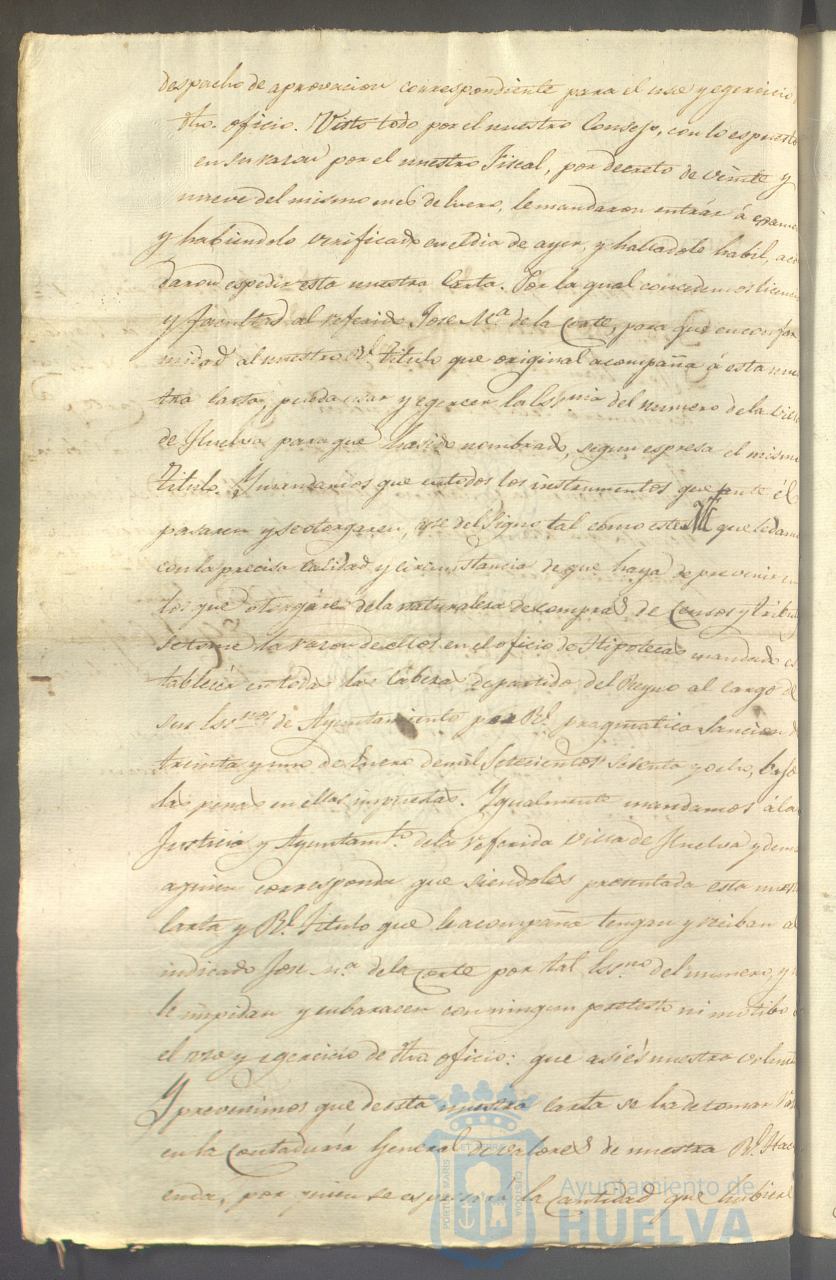 despacho de aprovacion correspondiente para el uso y egercicio
dho. oficio. Visto todo por el nuestro Consejo, con lo espuesto
en su razon por el nuestro Fiscal, por decreto de veinte y
nueve del mismo mes de Enero, le mandaron entrár á exame
y habiendolo verificado en el dia de ayer, y halladole habil, acor
daron espedir esta nuestra Carta. Por la qual concedemos licencia
y facultad al referido Jose Mª. de la Corte, para que en confor
midad al nuestro Rl. titulo que original acompaña á esta nues
tra Carta, pueda usar y egercer la Esnia del numero de la Villa
de Huelva para que ha sido nombrado, segun espresa el mismo
Titulo. Y mandamos que en todos los instrumentos que ante él
pasaren y se otorgaren, use del Signo tal como este que le damos
con la precisa calidad y circunstancia de que haya de prevenir en
los que otorgáre de la naturaleza de compras de Censos y tribu
se tome la razon de ellos en el oficio de Hipotecas mandado es
tablecer en todas las Cabezas de partido del Reyno al cargo de
sus Essnos de Ayuntamiento por Rl. pragmatica Sancion de
treinta y uno de Enero de mil Setecientos sesenta y ocho, bajo
las penas en ellas impuestas. Igualmente mandamos á la
Justicia y Ayuntamto. de la referida Villa de Huelva y demas
a quien corresponda que siendoles presentada esta nuestra
Carta y Rl. Titulo que le acompaña tengan y reciban al
indicado Jose Mª. de la Corte por tal Essno del numero, y
le impidan y embaracen con ningun protesto ni motibo
el uso y egercicio de dho oficio: que asi es nuestra volun
Y prevenimos que de esta nuestra Carta se ha de tomar raz
en la Contaduria General de valores de nuestra Rl. Haci
enda, por quien se espresará la Cantidad que hubiere
PORTUS MARIS ET TERRE CUSTODIA
Ayuntamiento de
HUELVA